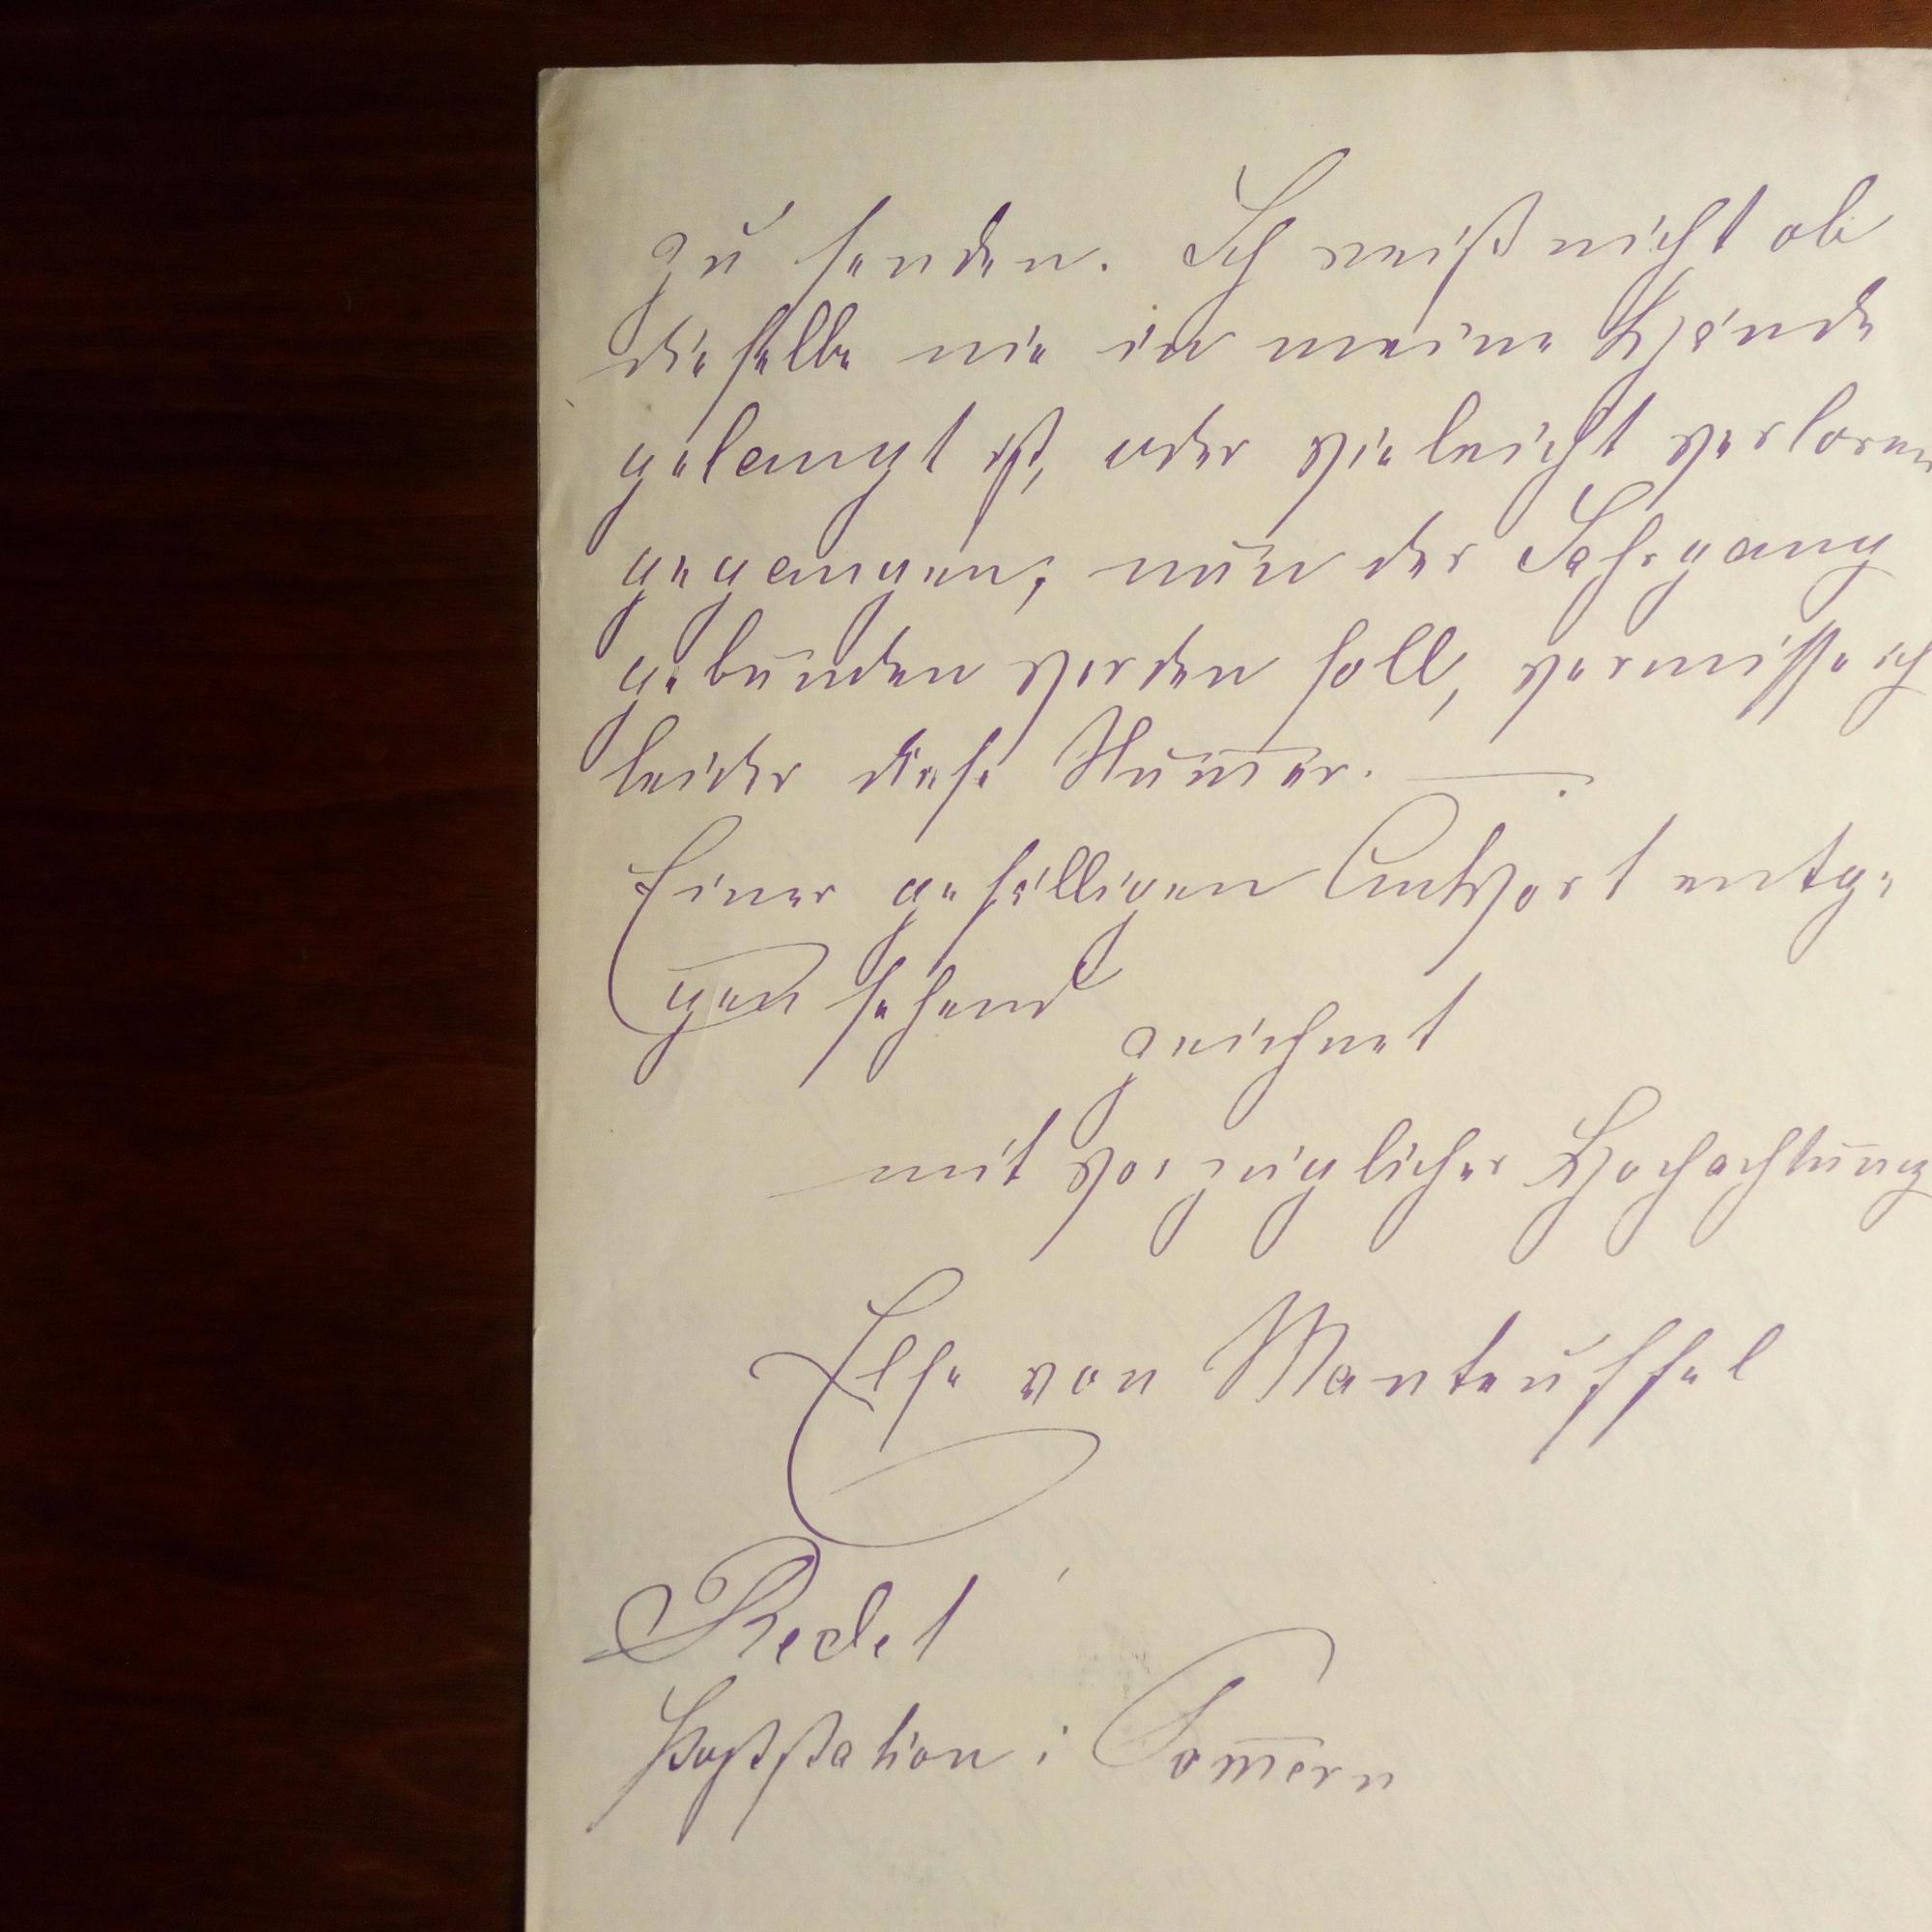 zu senden. Ich weiß nicht ob
dieselbe nie in meine Hände
gelangt ist, oder vieleicht verloren
gegangen; nun der Jahrgang
gebunden werden soll, vermisse ich
leider diese Num̅er. —
Einer gefälligen Antwort entge
gen sehend
zeichnet
mit vorzüglicher Hochachtung
Else von Manteuffel
Redel
Poststation i Pom̅ern